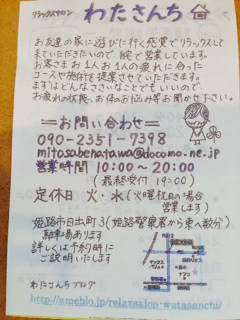 リラックスサロン わたさんち
お友達の家に遊びに行く感覚でリラックスして
きていただきたいので、腕で営業しています。
お客さまお1人お1人の疲れに合った
コースや施術を提案させていただきます。
まずはどんなささいなことでもいいので、
お疲れの状態、お体のお悩み等お聞かせ下さい。
＝お問い合わせ＝
090-2351-7398
mitosabenatawa@docomo.ne.jp
営業時間 10:00～20:00
(最終受付 19:00)
定休日 火・水(火曜祝日の場合
営業します)
姫路市日出町3(姫路警察署から東へ数分)
駐車場あります
詳しくは予約時に
ご説明いたします
わたさんちブログ
http://ameblo.jp/relaxsalon-watasanchi/